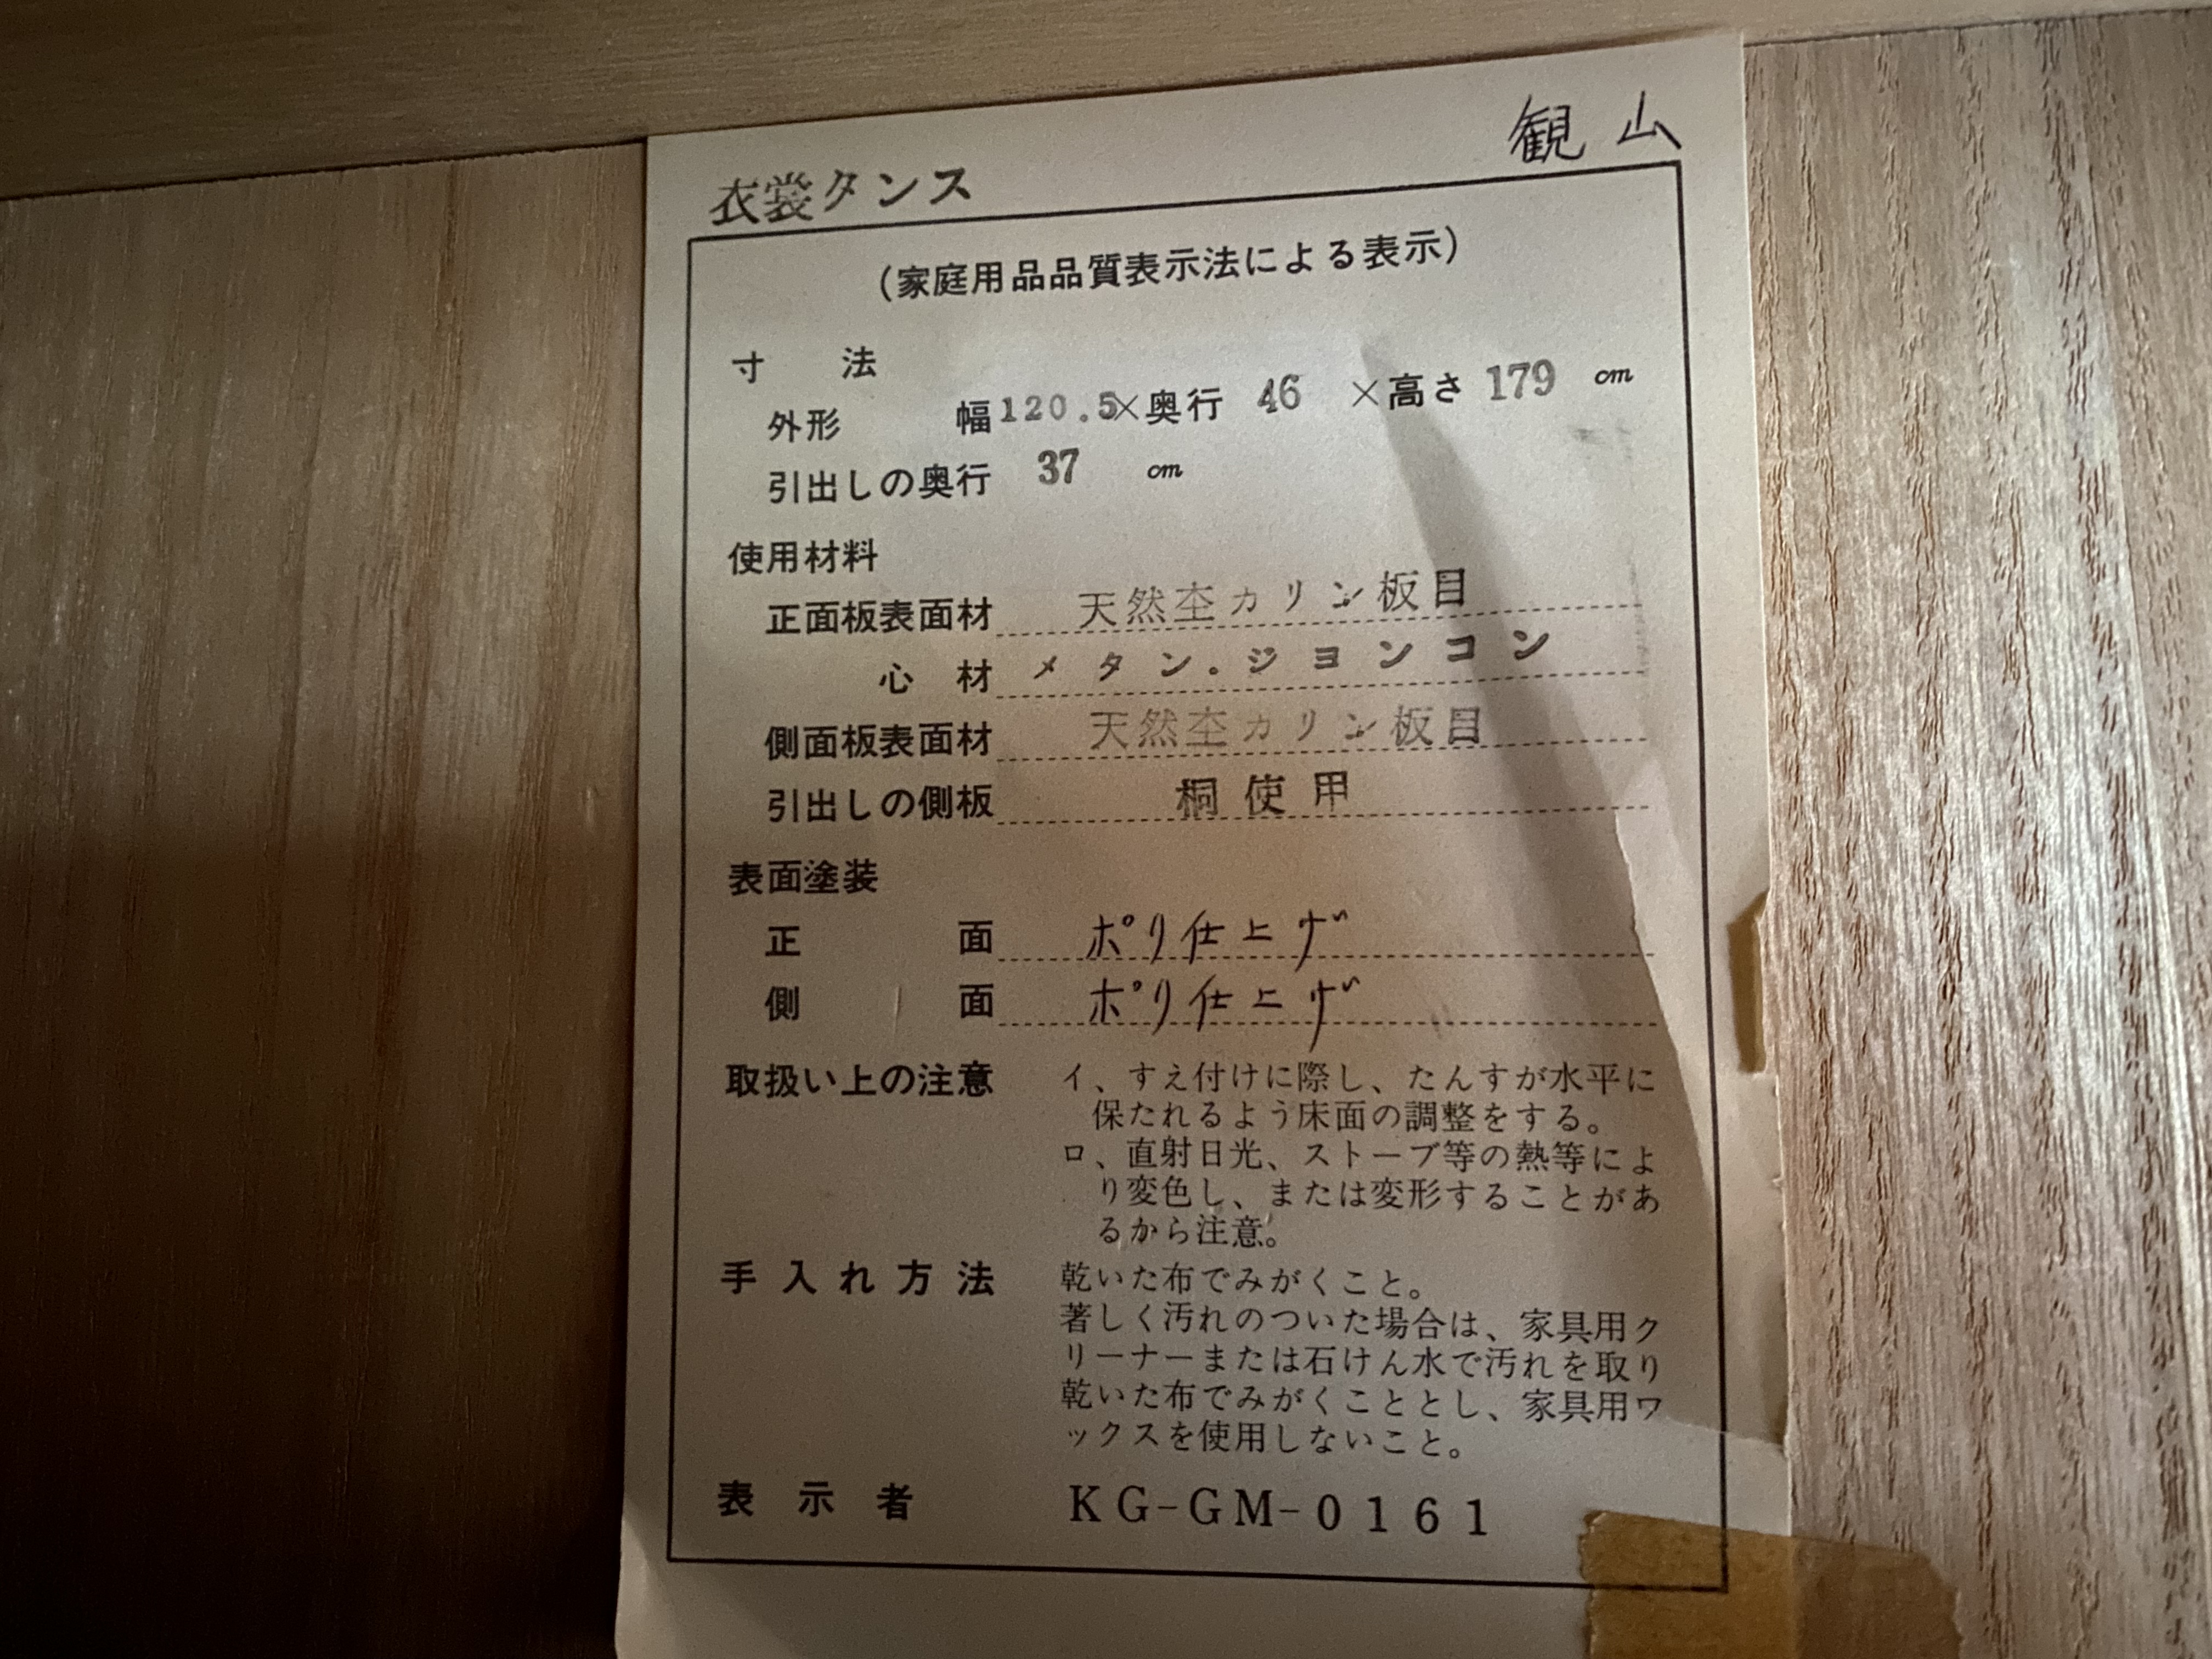 観山
衣裳タンス
(家庭用品品質表示法による表示)
寸 法
外形 幅120.5×奥行 46 ×高さ 179 cm
引出しの奥行 37 cm
使用材料
正面板表面材 天然杢カリン板目
心 材 メタン.ジヨンコン
側面板表面材 天然杢カリン板目
引出しの側板 桐使用
表面塗装
正 面 ポリ仕上げ
側 面 ポリ仕上げ
取扱い上の注意 イ、すえ付けに際し、たんすが水平に
保たれるよう床面の調整をする。
ロ、直射日光、ストーブ等の熱等によ
り変色し、または変形することがあ
るから注意。
手入れ方法 乾いた布でみがくこと。
著しく汚れのついた場合は、家具用ク
リーナーまたは石けん水で汚れを取り
乾いた布でみがくこととし、家具用ワ
ックスを使用しないこと。
表示者 KG-GM-0161